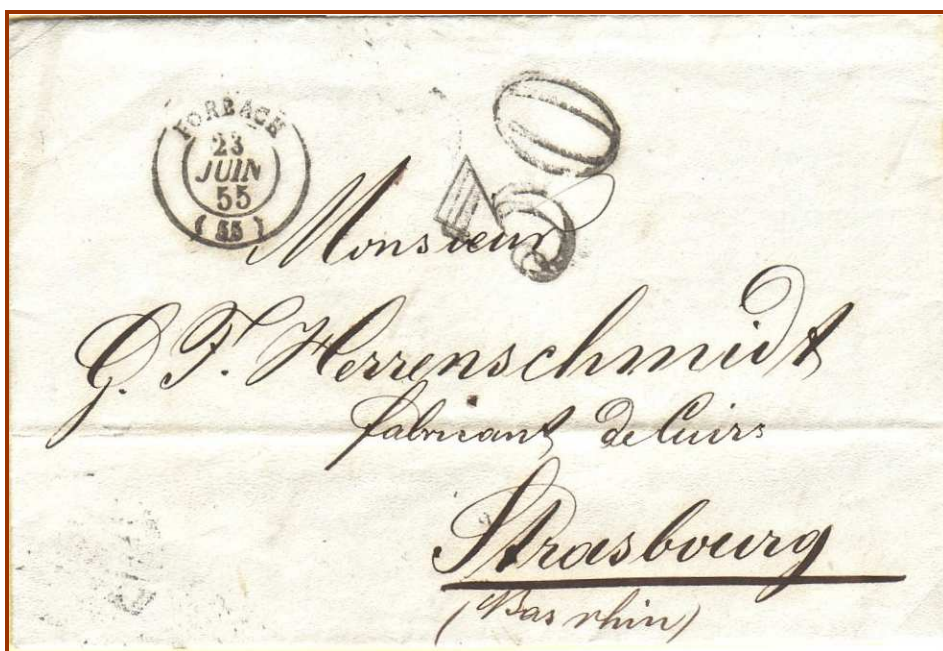 FORBACH
23
JUIN
55
(55)
Monsieur
G. F. Herrenschmidt
fabricant de Cuirs
Strasbourg
(Bas rhin)